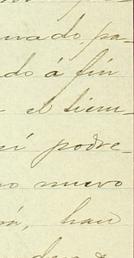 nado pa-
do á fin
el tiem-
í podre-
o nuevo
rá, han